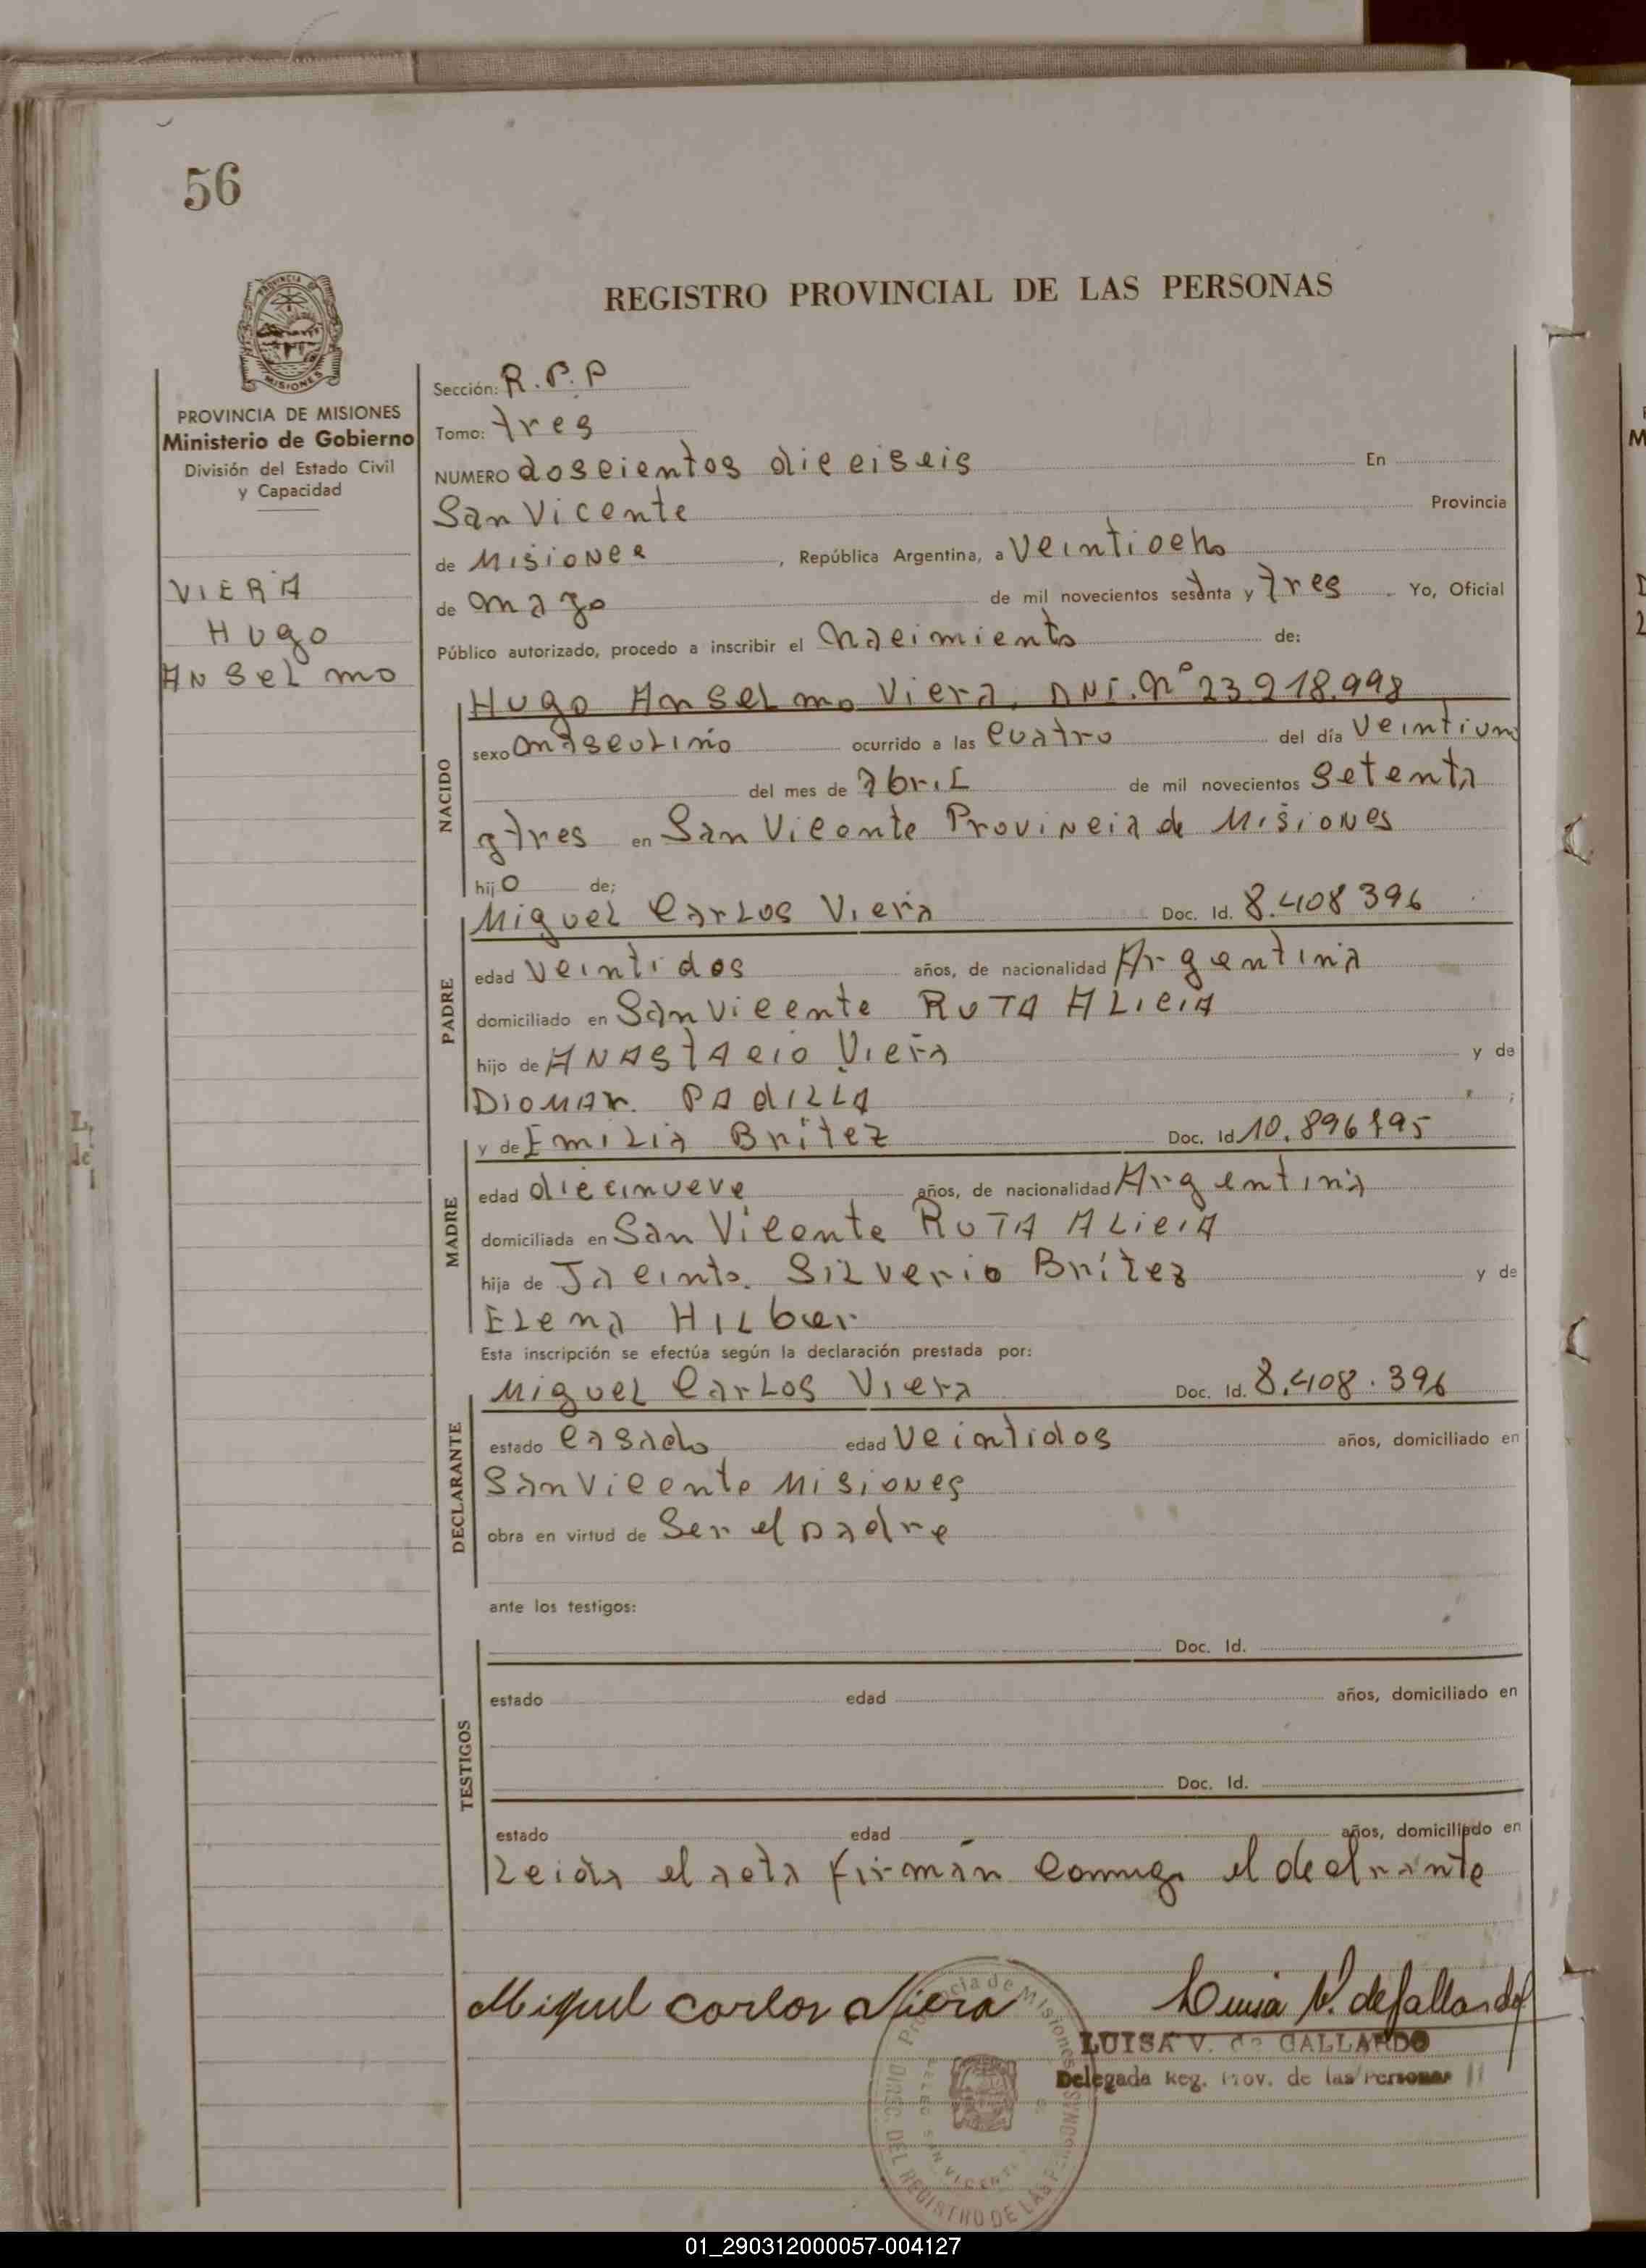 56
REGISTRO PROVINCIAL DE LAS PERSONAS
PROVINCIA DE MISIONES
Ministerio de Gobierno
División del Estado Civil
y Capacidad
VIERA
Hugo
ANSELmo
MISIONES
Sección: R.P.P
Tomo: tres
NUMERO doscientos dieciseis En
San Vicente Provincia
de Misiones, República Argentina, a Veintiocho
de mayo de mil novecientos setenta y tres. Yo, Oficial
Público autorizado, procedo a inscribir el Nacimiento de:
NACIDO
Hugo Anselmo Viera, DNI. Nº 23.218.998
sexo masculino ocurrido a las cuatro del día Veintiuno
del mes de abril de mil novecientos setenta
y tres en San Vicente Provincia de Misiones
hijo de;
PADRE
Miguel Carlos Viera Doc. Id. 8.408396
edad veintidos años, de nacionalidad Argentina
domiciliado en San Vicente RUTA ALICIA
hijo de ANAStAcio Viera y de
DIOMAR. PAdILLA ;
MADRE
y de Emilia Britez Doc. Id 10.896195
edad diecinueve años, de nacionalidad Argentina
domiciliada en San Vicente RUTA ALiciA
hija de Jacinto. Silverio Brítez y de
Elena Hilber
Esta inscripción se efectúa según la declaración prestada por:
DECLARANTE
Miguel Carlos Viera Doc. Id. 8.408.396
estado casado edad Veintidos años, domiciliado en
San Vicente Misiones
obra en virtud de Ser el padre
ante los testigos:
TESTIGOS
Doc. Id.
estado edad años, domiciliado en
Doc. Id.
estado edad años, domiciliado en
Leida el acta firman conmigo el declarante
Miguel Carlos Viera Luisa V. de Gallardo
LUISA V. de GALLARDO
Delegada Reg. Prov. de las Personas
Provincia de Misiones
DIREC. DEL REGISTRO DE LAS PERSONAS
DELEG. SAN VICENTE
01_290312000057-004127